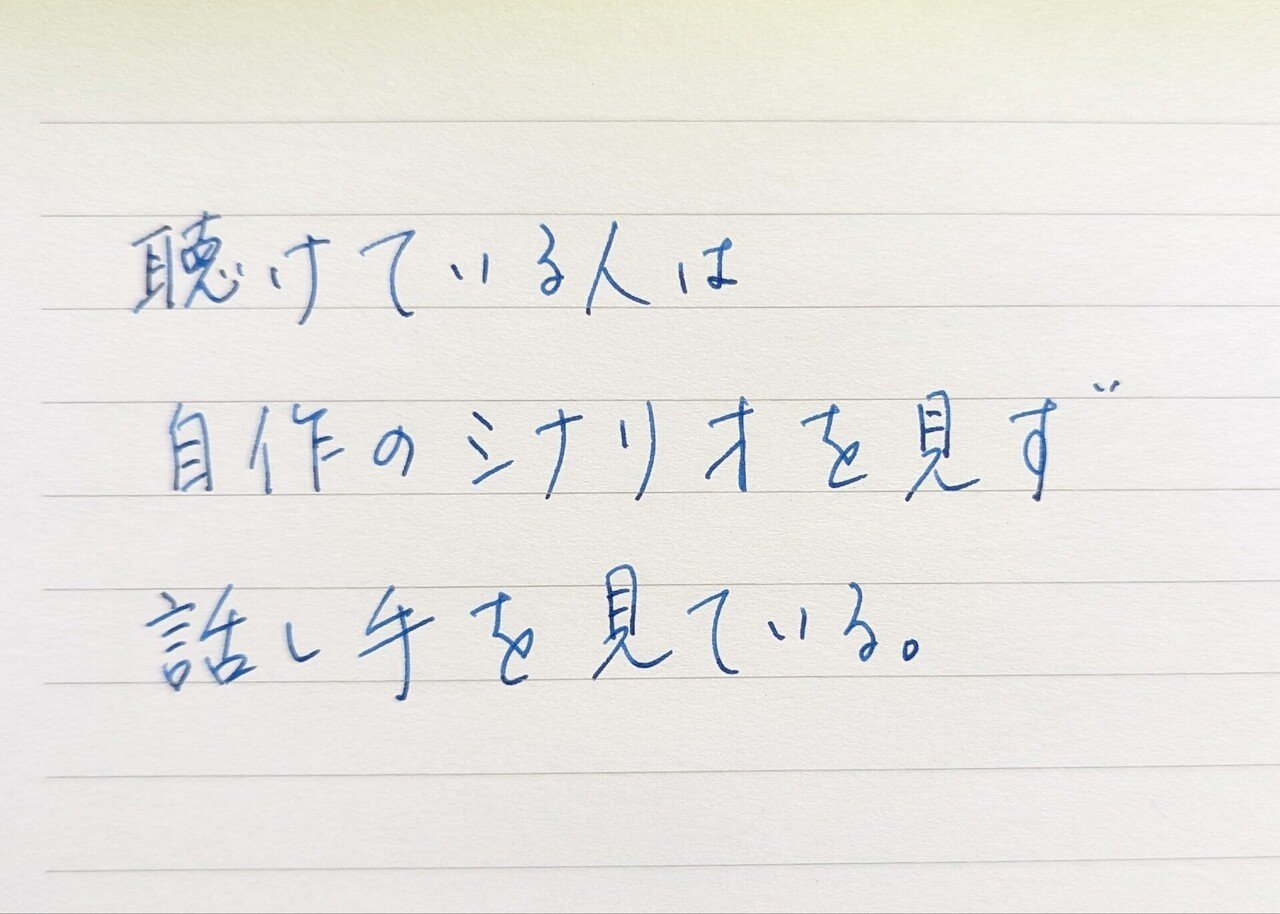 聴けている人は
自作のシナリオを見ず
話し手を見ている。